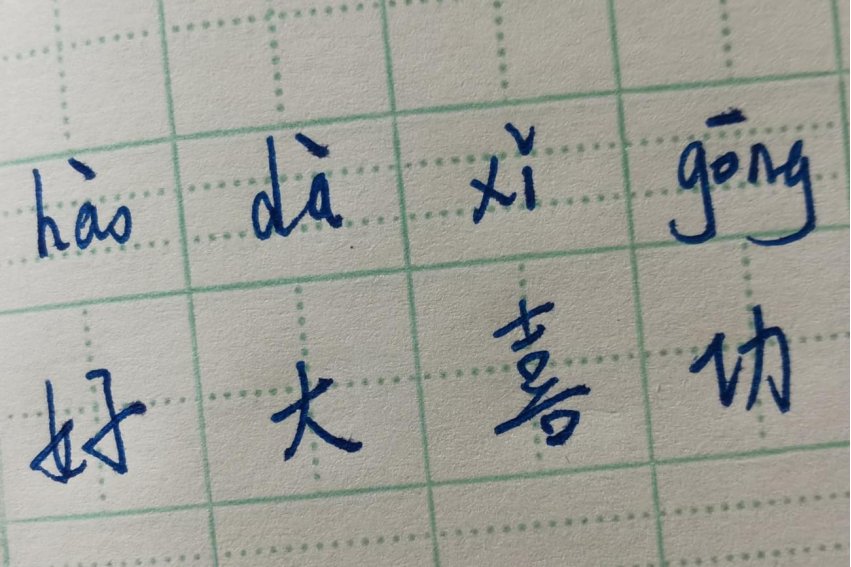 hào dà xǐ gōng
好大喜功